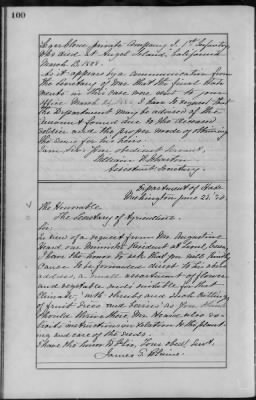 100
private Company I, 1st Infantry,
who died at Angel Island, California
March 13, 1888.
As it appears by a communication from
the Secretary of War that the final State
ments in this case were sent to your
office March I have to request that
the Department may be advised of the
amount found due to the deceased
soldier and the proper mode of obtaining
the same for his heirs.
I am, Sir, Your obedient servant,
William F. Wharton
Assistant Secretary.
Department of State
Washington, June 23, '90
The Honorable
The Secretary of Agriculture.
Sir:
In view of a request from Mr. Augustine
Heard our Minister Resident at Seoul, Corea,
I have the honor to ask that you will kindly
cause to be forwarded direct to his above
address, a small assortment of flower
and vegetable seeds suitable for that
climate, with shrubs and such cuttings
of fruit trees and berries as you think
should thrive there. Mr. Heard also so-
licits instructions in relation to the plant-
ing and care of the seeds.
I have the honor to be, Your obed't serv't,
James G. Blaine.